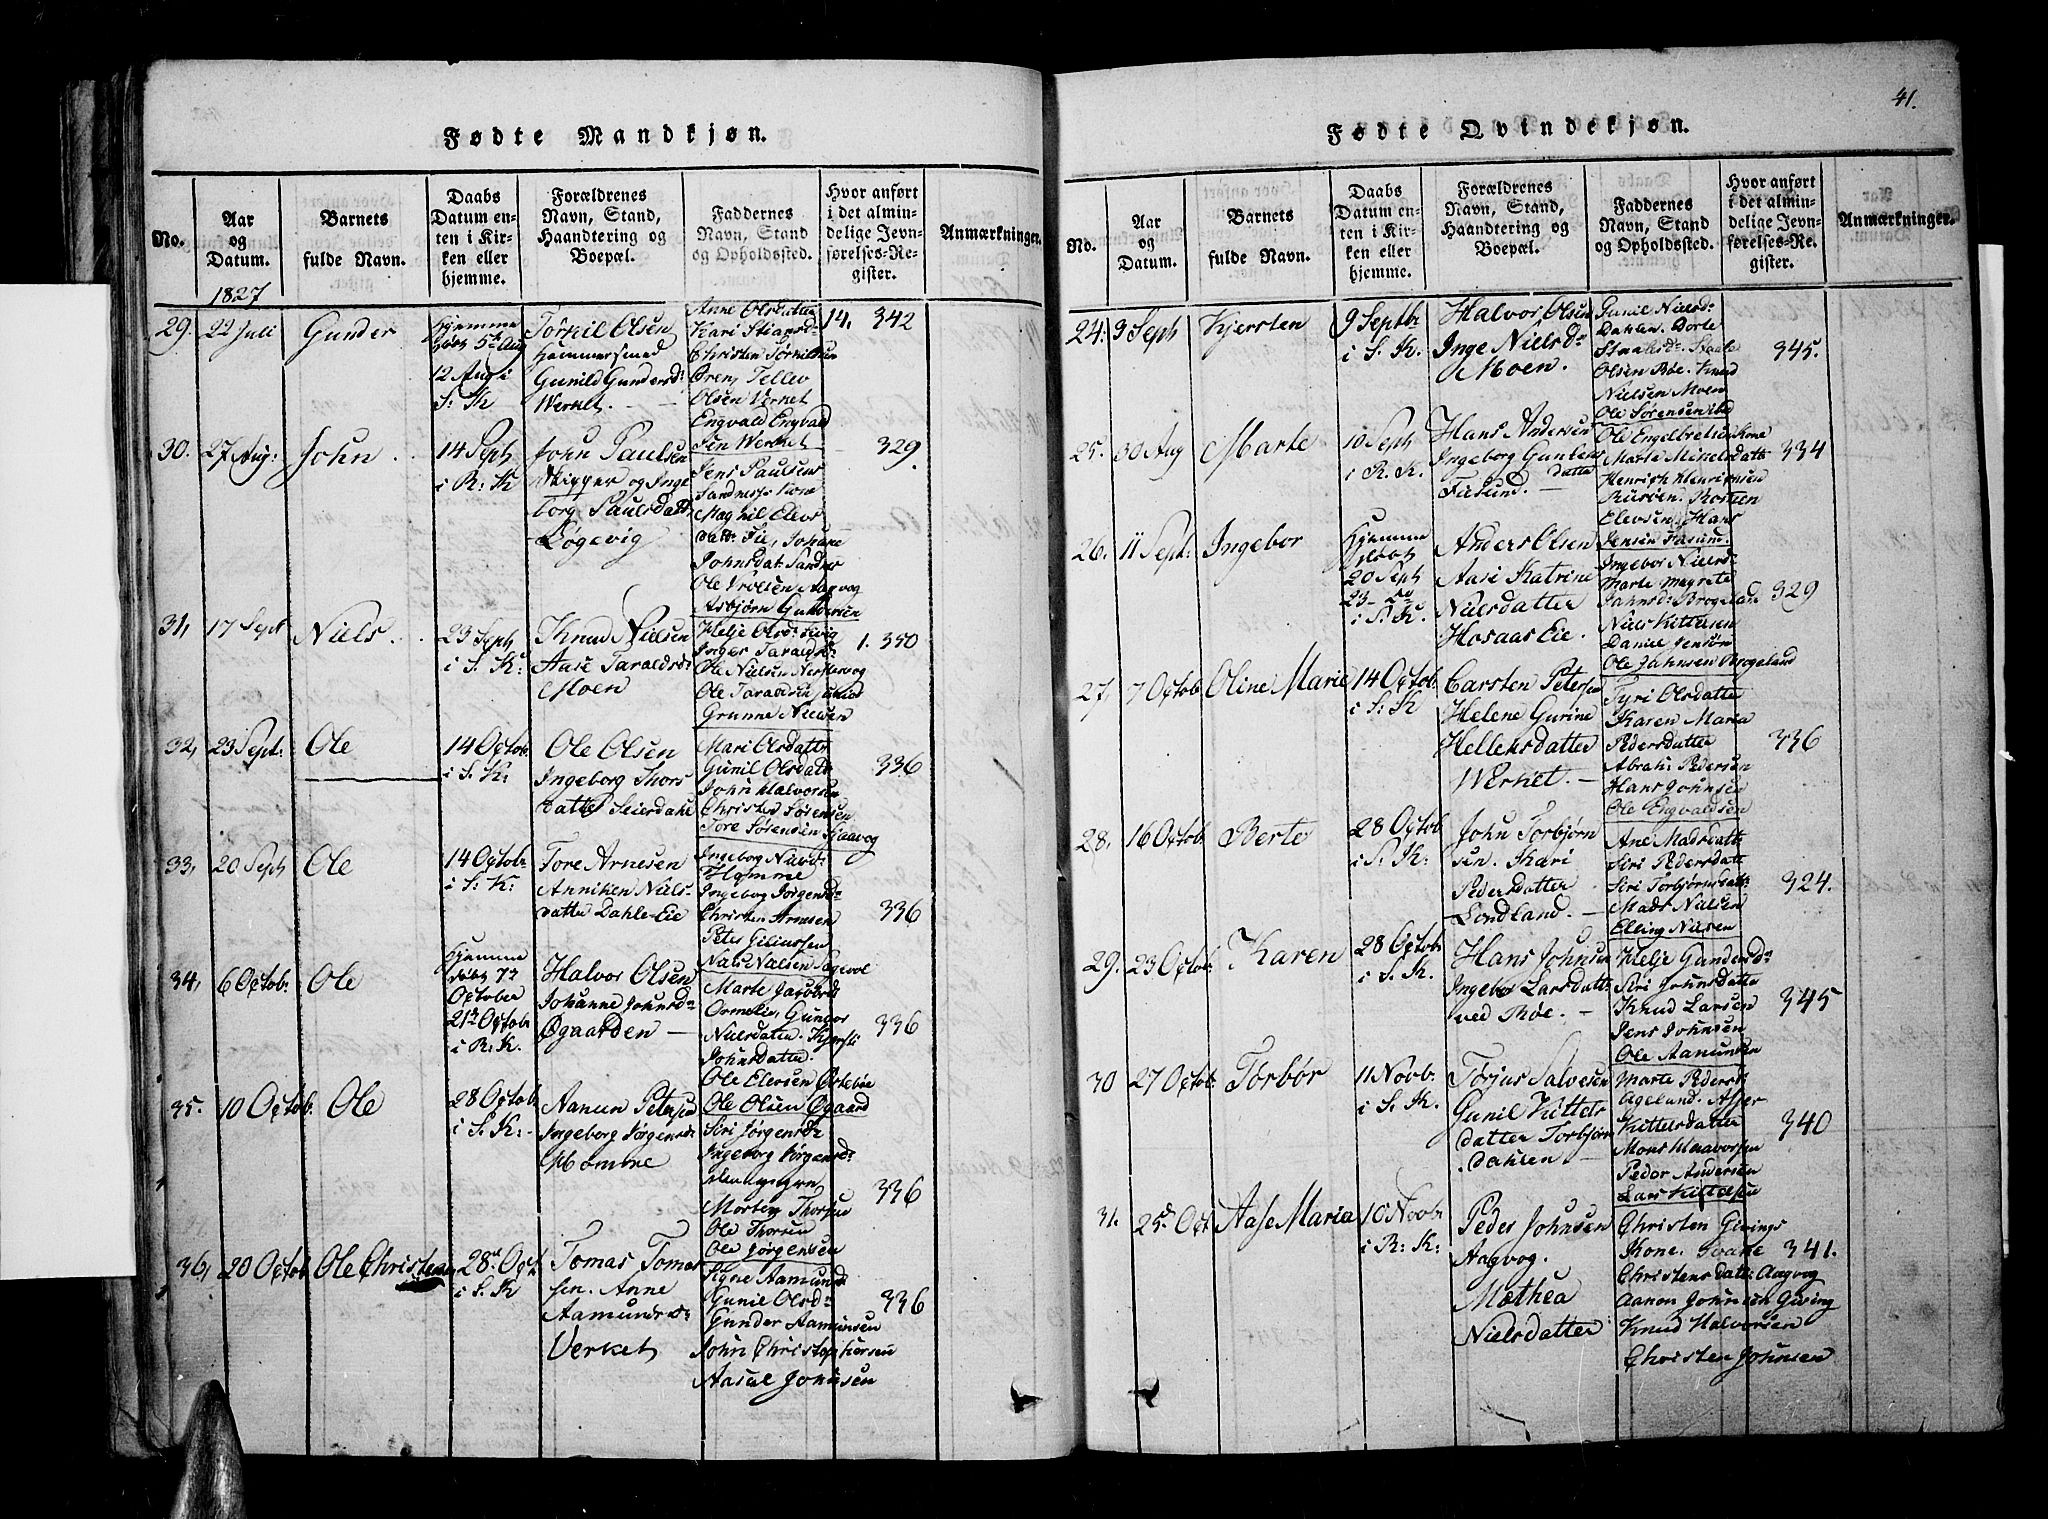 41.
Fødte Mandkjøn.
No.
Aar
og
Datum.
Barnets
fulde Navn.
Daabs
Datum en-
ten i Kir-
ken eller
hjemme.
Forældrenes
Navn, Stand,
Haandtering og
Boepæl.
Faddernes
Navn, Stand
og Opholdssted.
Hvor anført
i det almin-
delige Jevn-
førelses-Re-
gister.
Anmærkninger.
1827
29.
22 Juli
Gunder
Hjemme
12 Aug i
S: K
Olsen
Hammersmed
Gunild Gundersd:
Werket.
Christen
Tellev
Olsen Verket
Engvald Engvald
sen Werket
14, 342
30.
27 Aug:
John
14 Septb
i R: K
John Paulsen
Skipper og Inge
borg Paulsdatt
Løgevig
Jens Paulsens
Sandnes Kone
Johane
Johnsdat Sandnes
Asbjørn Gundersen
329.
31,
17 Sept
Niels
23 Septb
i S. K:
Knud Nielsen
Aase Taraldsd:
Moen
Inger Taraldsd:
Ole Nielsen
Grunne Nielsen
1. 350
32,
23 Sept:
Ole
14 Octob:
i S. K:
Ole Olsen
Ingeborg Thors
datter Seierdahl
Mari Olsdatt:
Gunil Olsdatt
John Halvorsen
Christen Sørensen
Tore Sørensen Kaavog
336
33,
20 Septb
Ole
14 Octob:
i S: K:
Tore Arnesen
Anniken Niels-
datter Dahle-Eie
Ingeborg Nielsd:
Homme
Ingebog Jørgensd:
Christen Arnesen
Niels Nielsen
336
34,
6 Octob:
Ole
Hjemme
døbt 7de
October
21de Octob
i R: K.
Halvor Olsen
Johanne Johnsd:
Øgaarden
Gunbor
Nielsdatter. Kjersti
Johnsdatter.
Ole Elevsen Østebøe
Ole Olsen Øgaard
336
35.
10 Octob.
Ole
28 Octob:
i S. K:
Aanun Petersen
Ingeborg Jørgensd:
Homme
Siri Jørgensd:
Ingeborg Jørgensd:
Morten Thorsen
Ole Thorsen
Ole Jørgensen
336
36,
20 Octob
Ole Christen
28de Oct
i S. K
Tomas Tomas
sen. Anne
Aamundsd:
Verket
Signe Aamundsd
Gunil Olsd:
Gunder Aamunsen
John Christophersen
Aasul Johnsen
336
Fødte Qvindekjøn.
No.
Aar
og
Datum.
Barnets
fulde Navn.
Daabs
Datum en-
ten i Kir-
ken eller
hjemme.
Forældrenes
Navn, Stand,
Haandtering og
Boepæl.
Faddernes
Navn, Stand
og Opholdssted.
Hvor anført
i det almin-
delige Jevn-
førelses-Re-
gister.
Anmærkninger.
24.
3 Septb
Kjersten
9 Septbr
i S. K.
Halvor Olsen
Inge Nielsd:
Moen.
Gunil Nielsd:
Dahlen. Dorte
Staalesd: Staale
Olsen Røe. Knud
Nielsen Moen
Ole Sørensen ibid
345.
25.
30 Aug
Marte
10 Septb
i R. K.
Hans Andersen
Ingeborg Gunders
datter
Fusund.
Ole Engelbretsens Kone
Henrich Henrichsen
Elevsen. Hans
Jensen Fusund.
334
26.
11 Sept:
Ingebor
Hjemme
døbt
20 Septb
i S. K.
Anders Olsen
Aase Katrine
Nielsdatter
Hosaas Eie.
Ingebor Nielsd:
Marte Magrete
Jahnsd: Brogeland
Niels Kittelsen
Daniel Jensøn
Ole Jahnsen Brogeland
329
27,
7 Octob
Oline Marie
14 Octob
i S: K
Carsten Petersen
Helene Gurine
Hellensdatter
Werket.
Tyri Olsdatter
Karen Maria
Pedersdatter
Abrah: Pedersen
Hans Johnsen
Ole Engvaldsen
336
28,
16 Octob.
Berte
28 Octob
i S: K:
John Torbjørn
sen. Kari
Pedersdatter
Londland.
Ane Madsdatt:
Siri Pedersdatt:
Siri Torbjørnsdatt:
Mads Nielsen
Elling Nilsen
324.
29.
23 Octob:
Karen
28 Octob:
i S. K.
Hans Johnsen
Ingebor Larsdatt:
ved Røe.
Helje Gundersd:
Siri Johnsdatter
Knud Larsen
Jens Johnsen
Ole Aamunsen
345
30
27 Octob:
Torbør
11 Novb.
i S. K.
Torjus Salvesen
Gunil Kittels
datter Torbjørn
dahlen
Marte Pedersd
Kittelsdatter
Mons Halvorsen
Peder Andersen
Lars Kittelsen
340
31.
25de Oct
Aase Maria
10 Novb:
i R: K:
Peder Johnsen
Aagvog.
Mathea
Nielsdatter
Christen Givings
Kone.
Christensdatt: Aagvog
Aanon Johnsen Giving
Knud Halvorsen
Christen Johnsen
341.